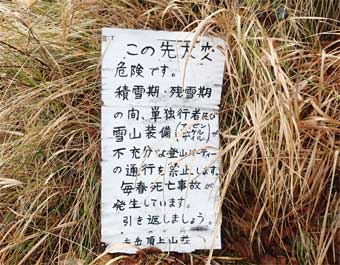 この先大変
危険です。
積雪期・残雪期
の向、単独行者及び
雪山装備(アイゼン
ピッケル)が
不充分な登山パーティー
の通行を禁止します。
毎春死亡事故が
発生しています。
引き返しましょう。
岳頂上山荘